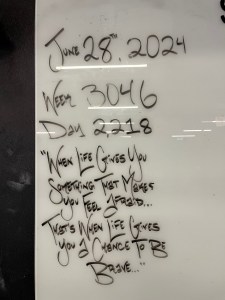 June 28th, 2024
Week 3046
Day 2,218
"When Life Gives You
Something That Makes
You Feel Afraid...
That's When Life Gives
You A Chance To Be
Brave..."